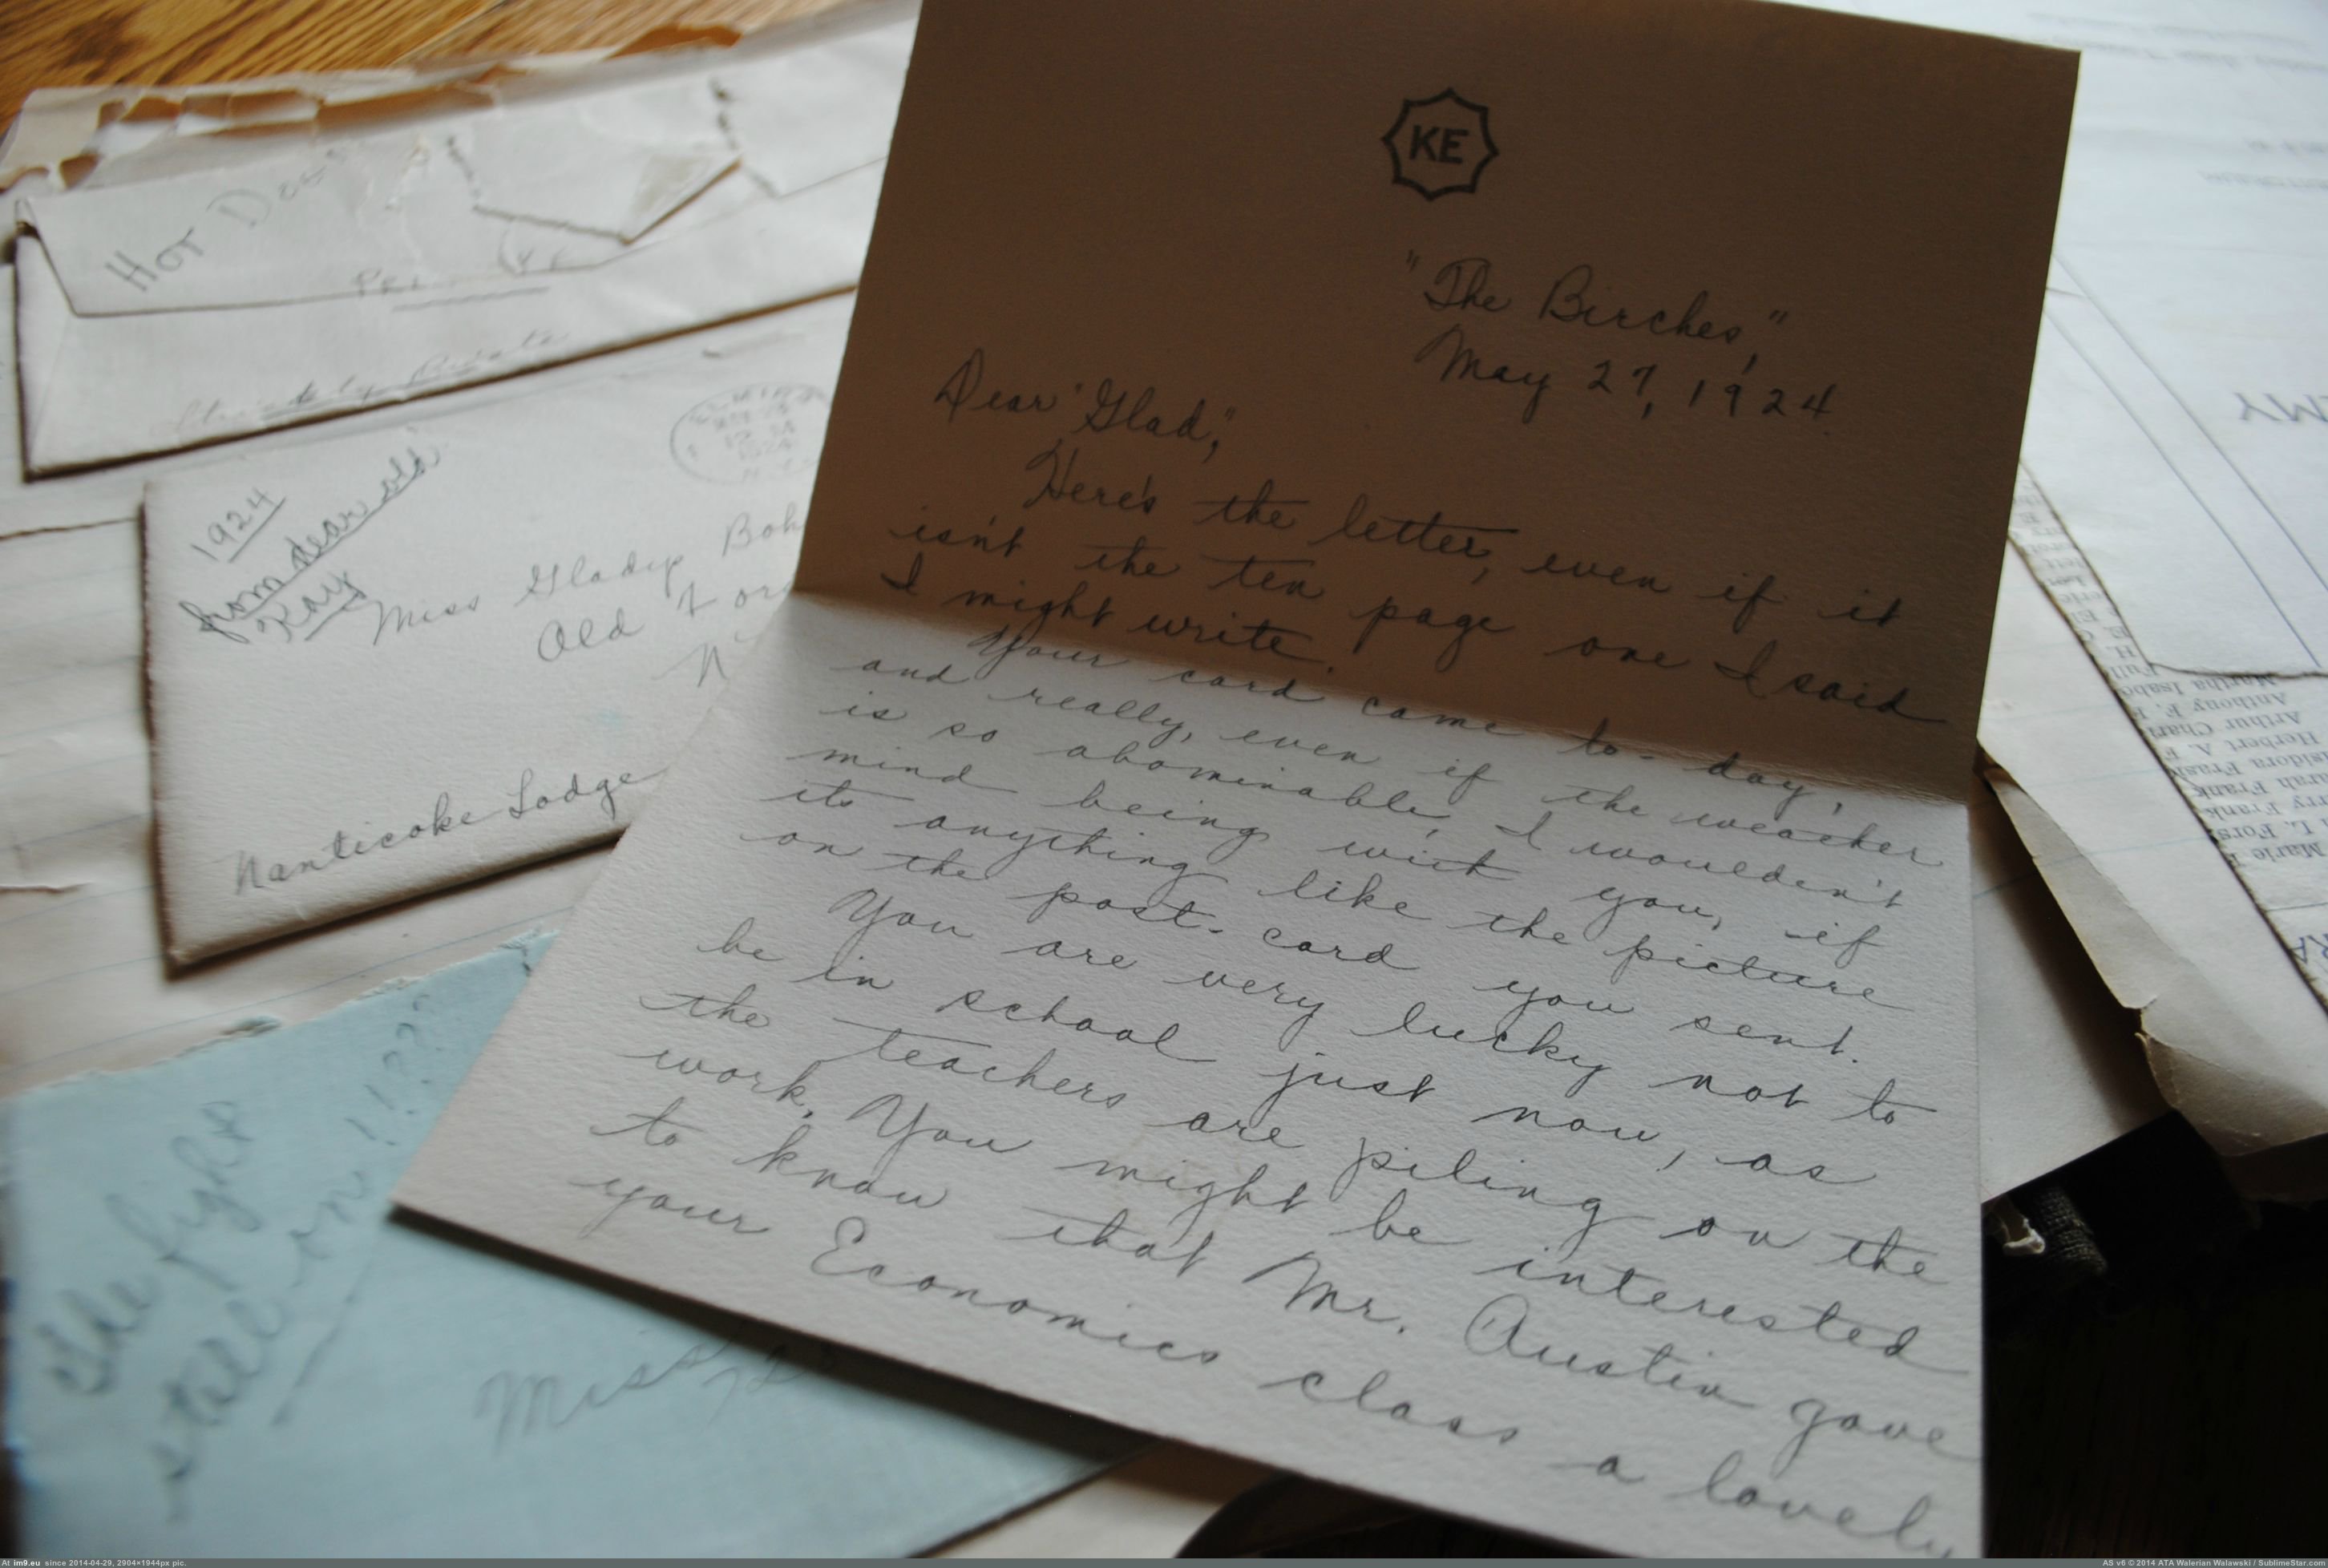 KE
"The Birches,"
May 27, 1924.
Dear "Glad,"
Here's the letter, even if it
isn't the ten page one I said
I might write.
Your card came to-day,
and really, even if the weather
is so abominable, I wouldn't
mind being with you, if
its anything like the picture
on the post-card you sent.
You are very lucky not to
be in school just now, as
the teachers are piling on the
work. You might be interested
to know that Mr. Austin gave
your Economics class a lovely
Hot Dog
1924
from dear old
Kay
Miss Gladys
Old
Nanticoke Lodge
The fight
still on!!??
Miss
MY
Martha
Anthony F.
Arthur
Herbert A. F
Frank
Frank
Marie
At im9.eu since 2014-04-29, 2904×1944px pic.
AS v6 © 2014 ATA Walerian Walawski / SublimeStar.com